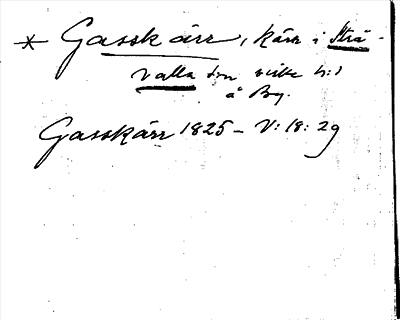 * Gasskärr, kärr i Strå-
valla sn, Viske h:d
å By.
Gasskärr 1825 - V: 18: 29